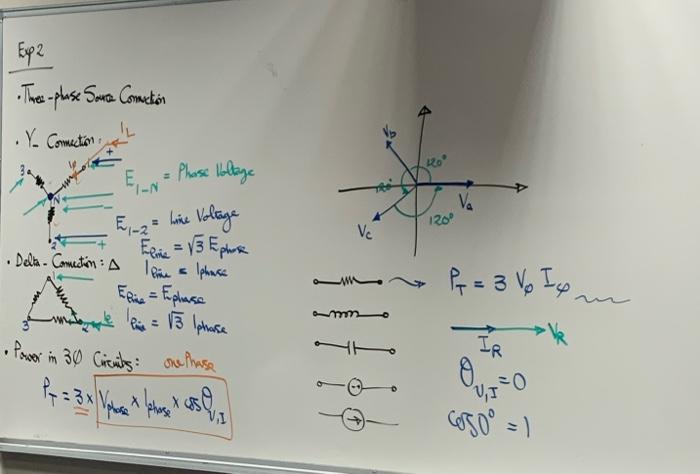 Exp 2
• Three-phase Source Connection
• Y- Connection:
I_L
3
1
+
N
2
+
E_1-N = Phase Voltage
E_1-2 = Line Voltage
E_line = √3 E_phase
I_line = I_phase
• Delta-Connection: Δ
1
3
2
E_line = E_phase
I_line = √3 I_phase
• Power in 3Ø Circuits: one Phase
P_T = 3 × V_phase × I_phase × cos θ_V,I
V_b
120°
120°
V_a
V_c
120°
P_T = 3 V_φ I_φ
I_R V_R
θ_V,I = 0
cos 0° = 1